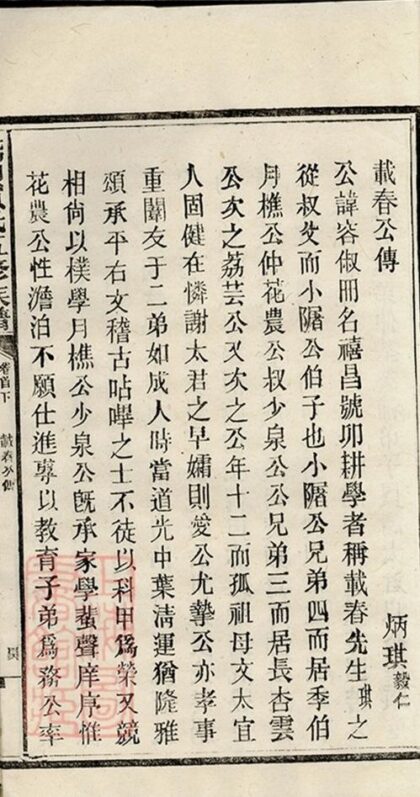 載春公傳
炳琪毅仁
公諱容俶冊名禧昌號卯耕學者稱載春先生琪之
從叔父而小隴公伯子也小隴公兄弟四而居季伯
月樵公仲花農公叔少泉公公兄弟三而居長杏雲
公次之荔芸公又次之公年十二而孤祖母文太宜
人固健在憐謝太君之早孀則愛公尤摯公亦孝事
重闈友于二弟如成人時當道光中葉清運猶隆雅
頌承平右文稽古呫嗶之士不徒以科甲爲榮又競
相尙以樸學月樵公少泉公旣承家學蜚聲庠序惟
花農公性澹泊不願仕進專以教育子弟爲務公率
五修族譜
卷首下
載春公傳